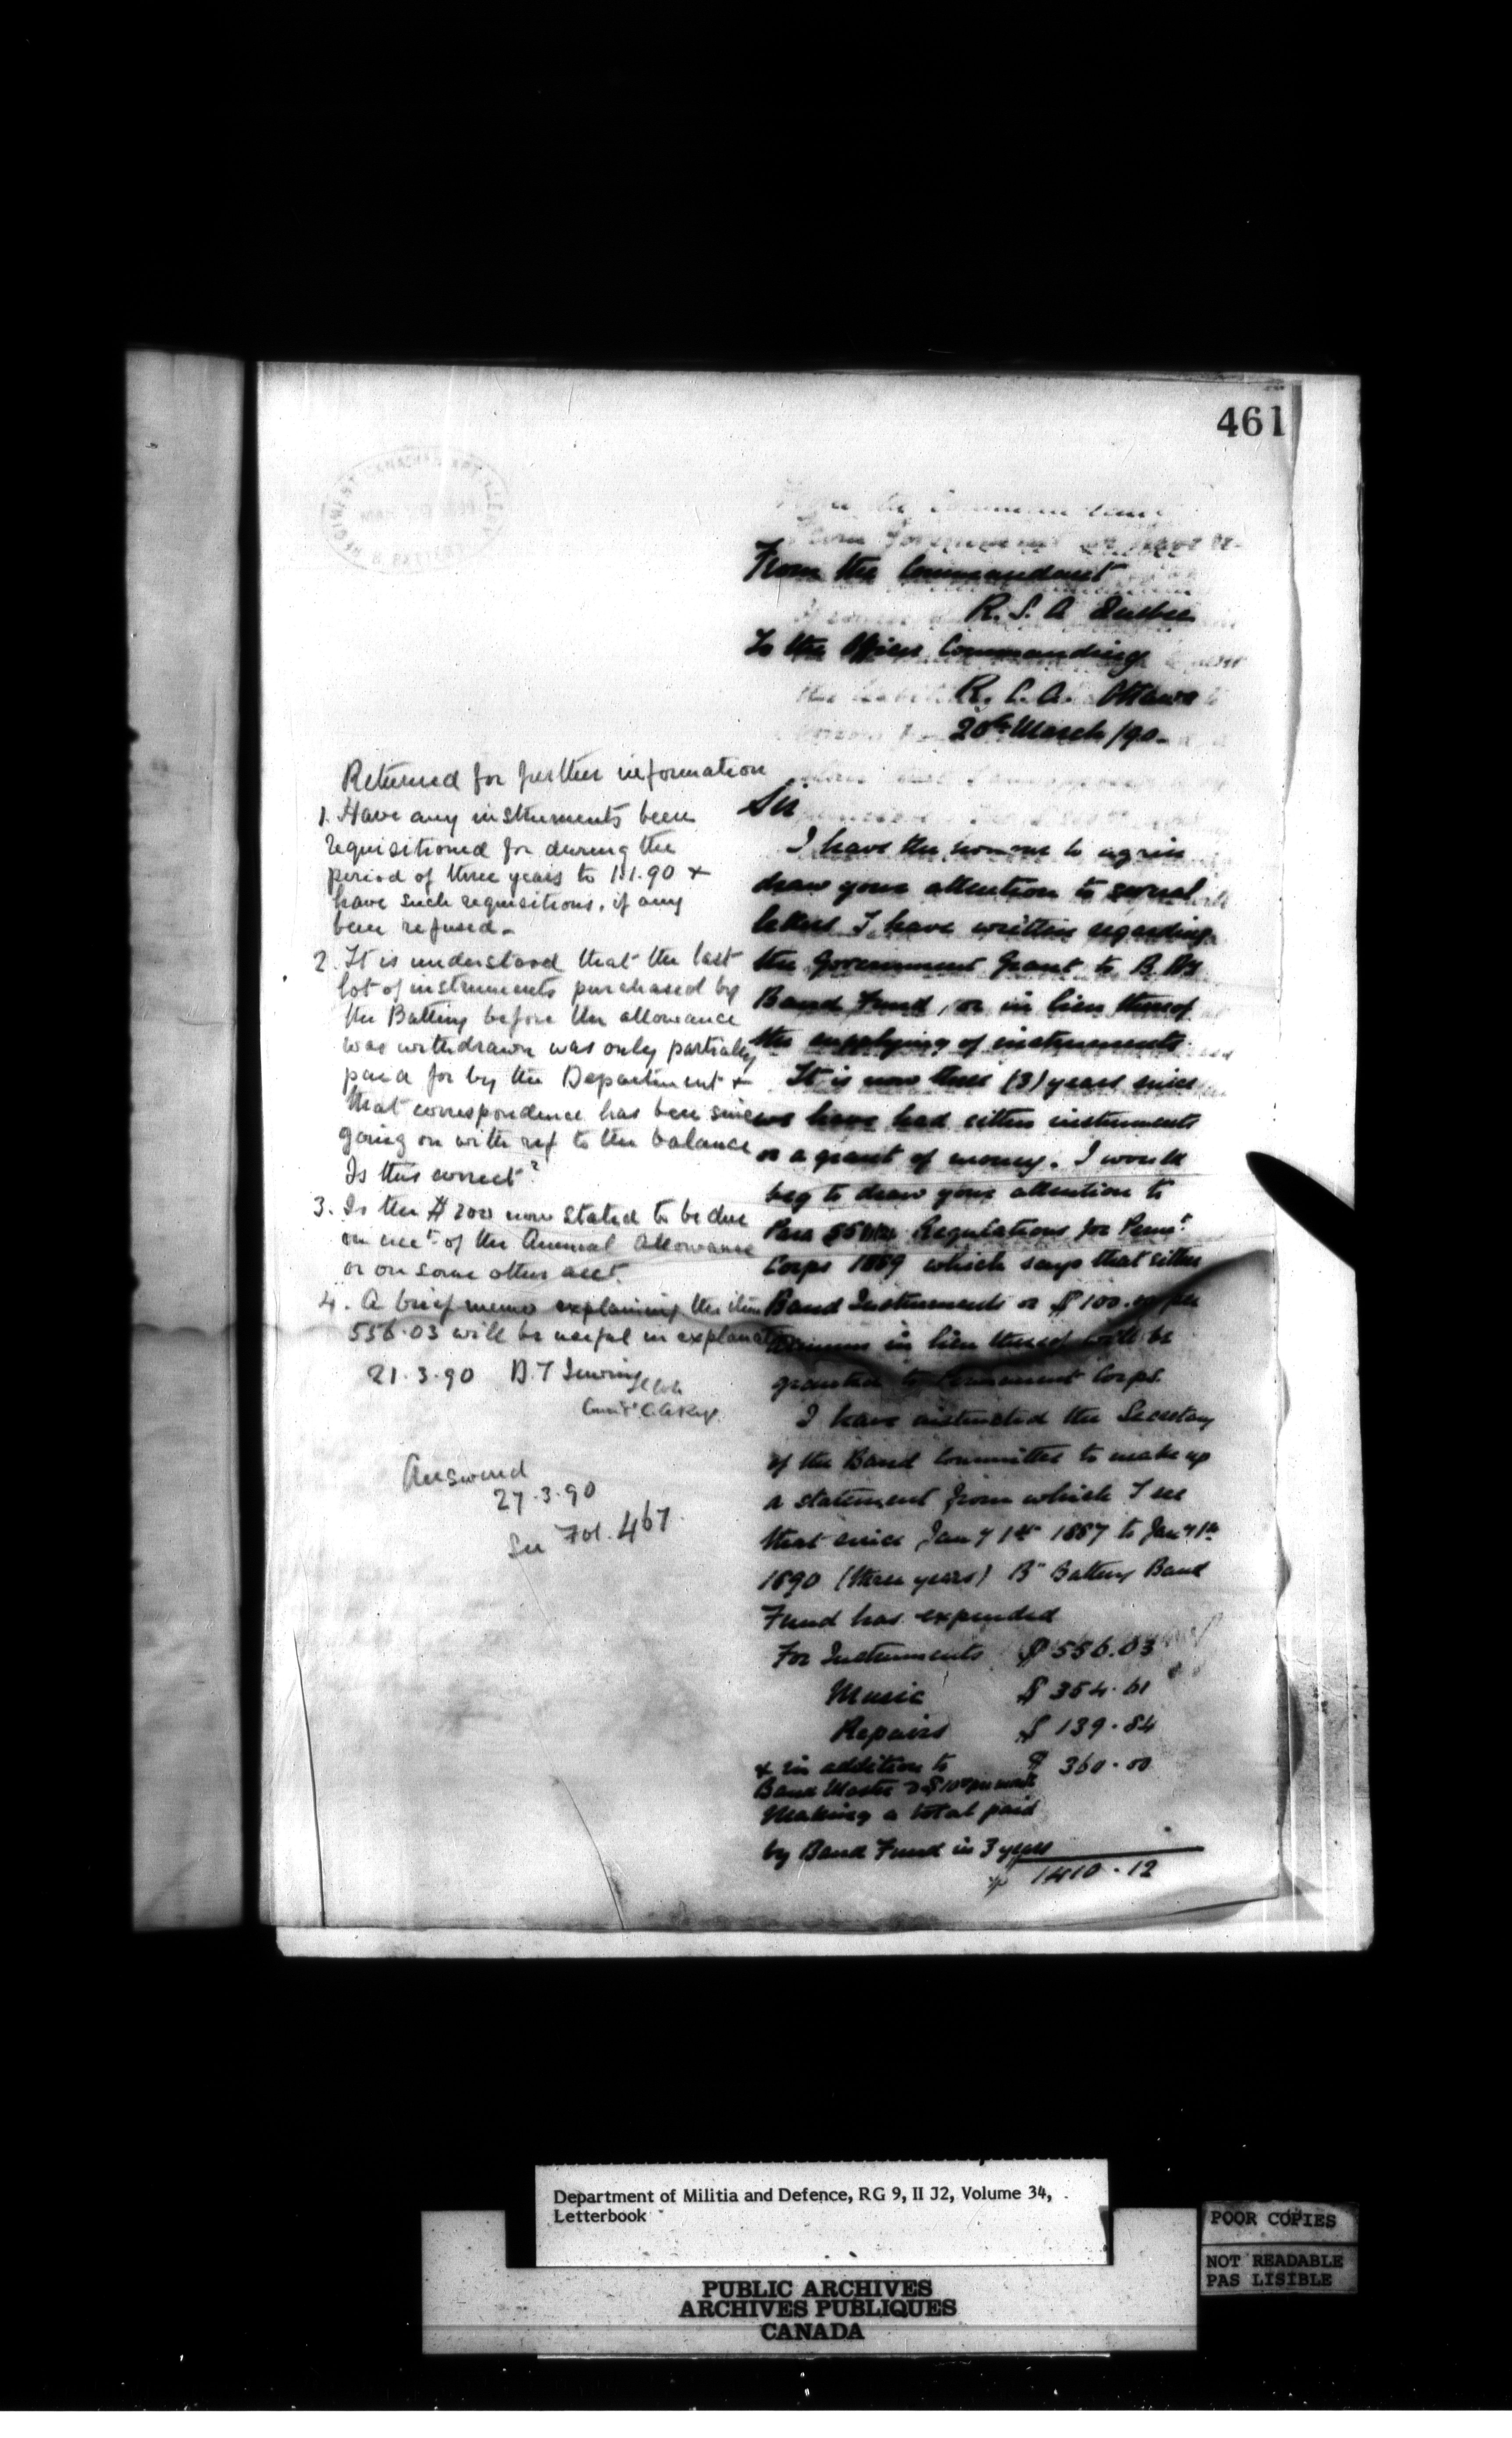 461
From the Commandant
R. S. A Quebec
To the Officer Commanding
R. C. A. Ottawa
20th March /90
Sir
I have the honour to again
draw your attention to several
letters I have written regarding
the Government Grant to B. By
Band Fund, or in lieu thereof
the supplying of instruments.
It is now three (3) years since
we have had either instruments
or a grant of money. I would
beg to draw your attention to
Para Regulations for Permt
Corps 1889 which says that either
Band Instruments or $100.00 per
annum in lieu thereof will be
granted to Permanent Corps.
I have instructed the Secretary
of the Band Committee to make up
a statement from which I see
that since Jany 1st 1887 to Jany 1st
1890 (three years) B" Battery Band
Fund has expended
For Instruments $ 556.03
Music $ 354.61
Repairs $ 139.84
& in addition to $ 360.00
Band Master $10 per month
Making a total paid
by Band Fund in 3 years
$ 1410.12
Returned for further information
1. Have any instruments been
requisitioned for during the
period of three years to 1.1.90 &
have such requisitions, if any
been refused -
2. It is understood that the last
lot of instruments purchased by
the Battery before the allowance
was withdrawn was only partially
paid for by the Department &
that correspondence has been since
going on with ref to the balance
Is this correct?
3. Is the $200 now stated to be due
on acct of the Annual Allowance
or on some other acct.
4. A brief memo explaining the item
556.03 will be useful in explanation
21.3.90 D. T Irwin
Answered
27.3.90
See Fol. 467
Department of Militia and Defence, RG 9, II J2, Volume 34,
Letterbook
PUBLIC ARCHIVES
ARCHIVES PUBLIQUES
CANADA
POOR COPIES
NOT READABLE
PAS LISIBLE